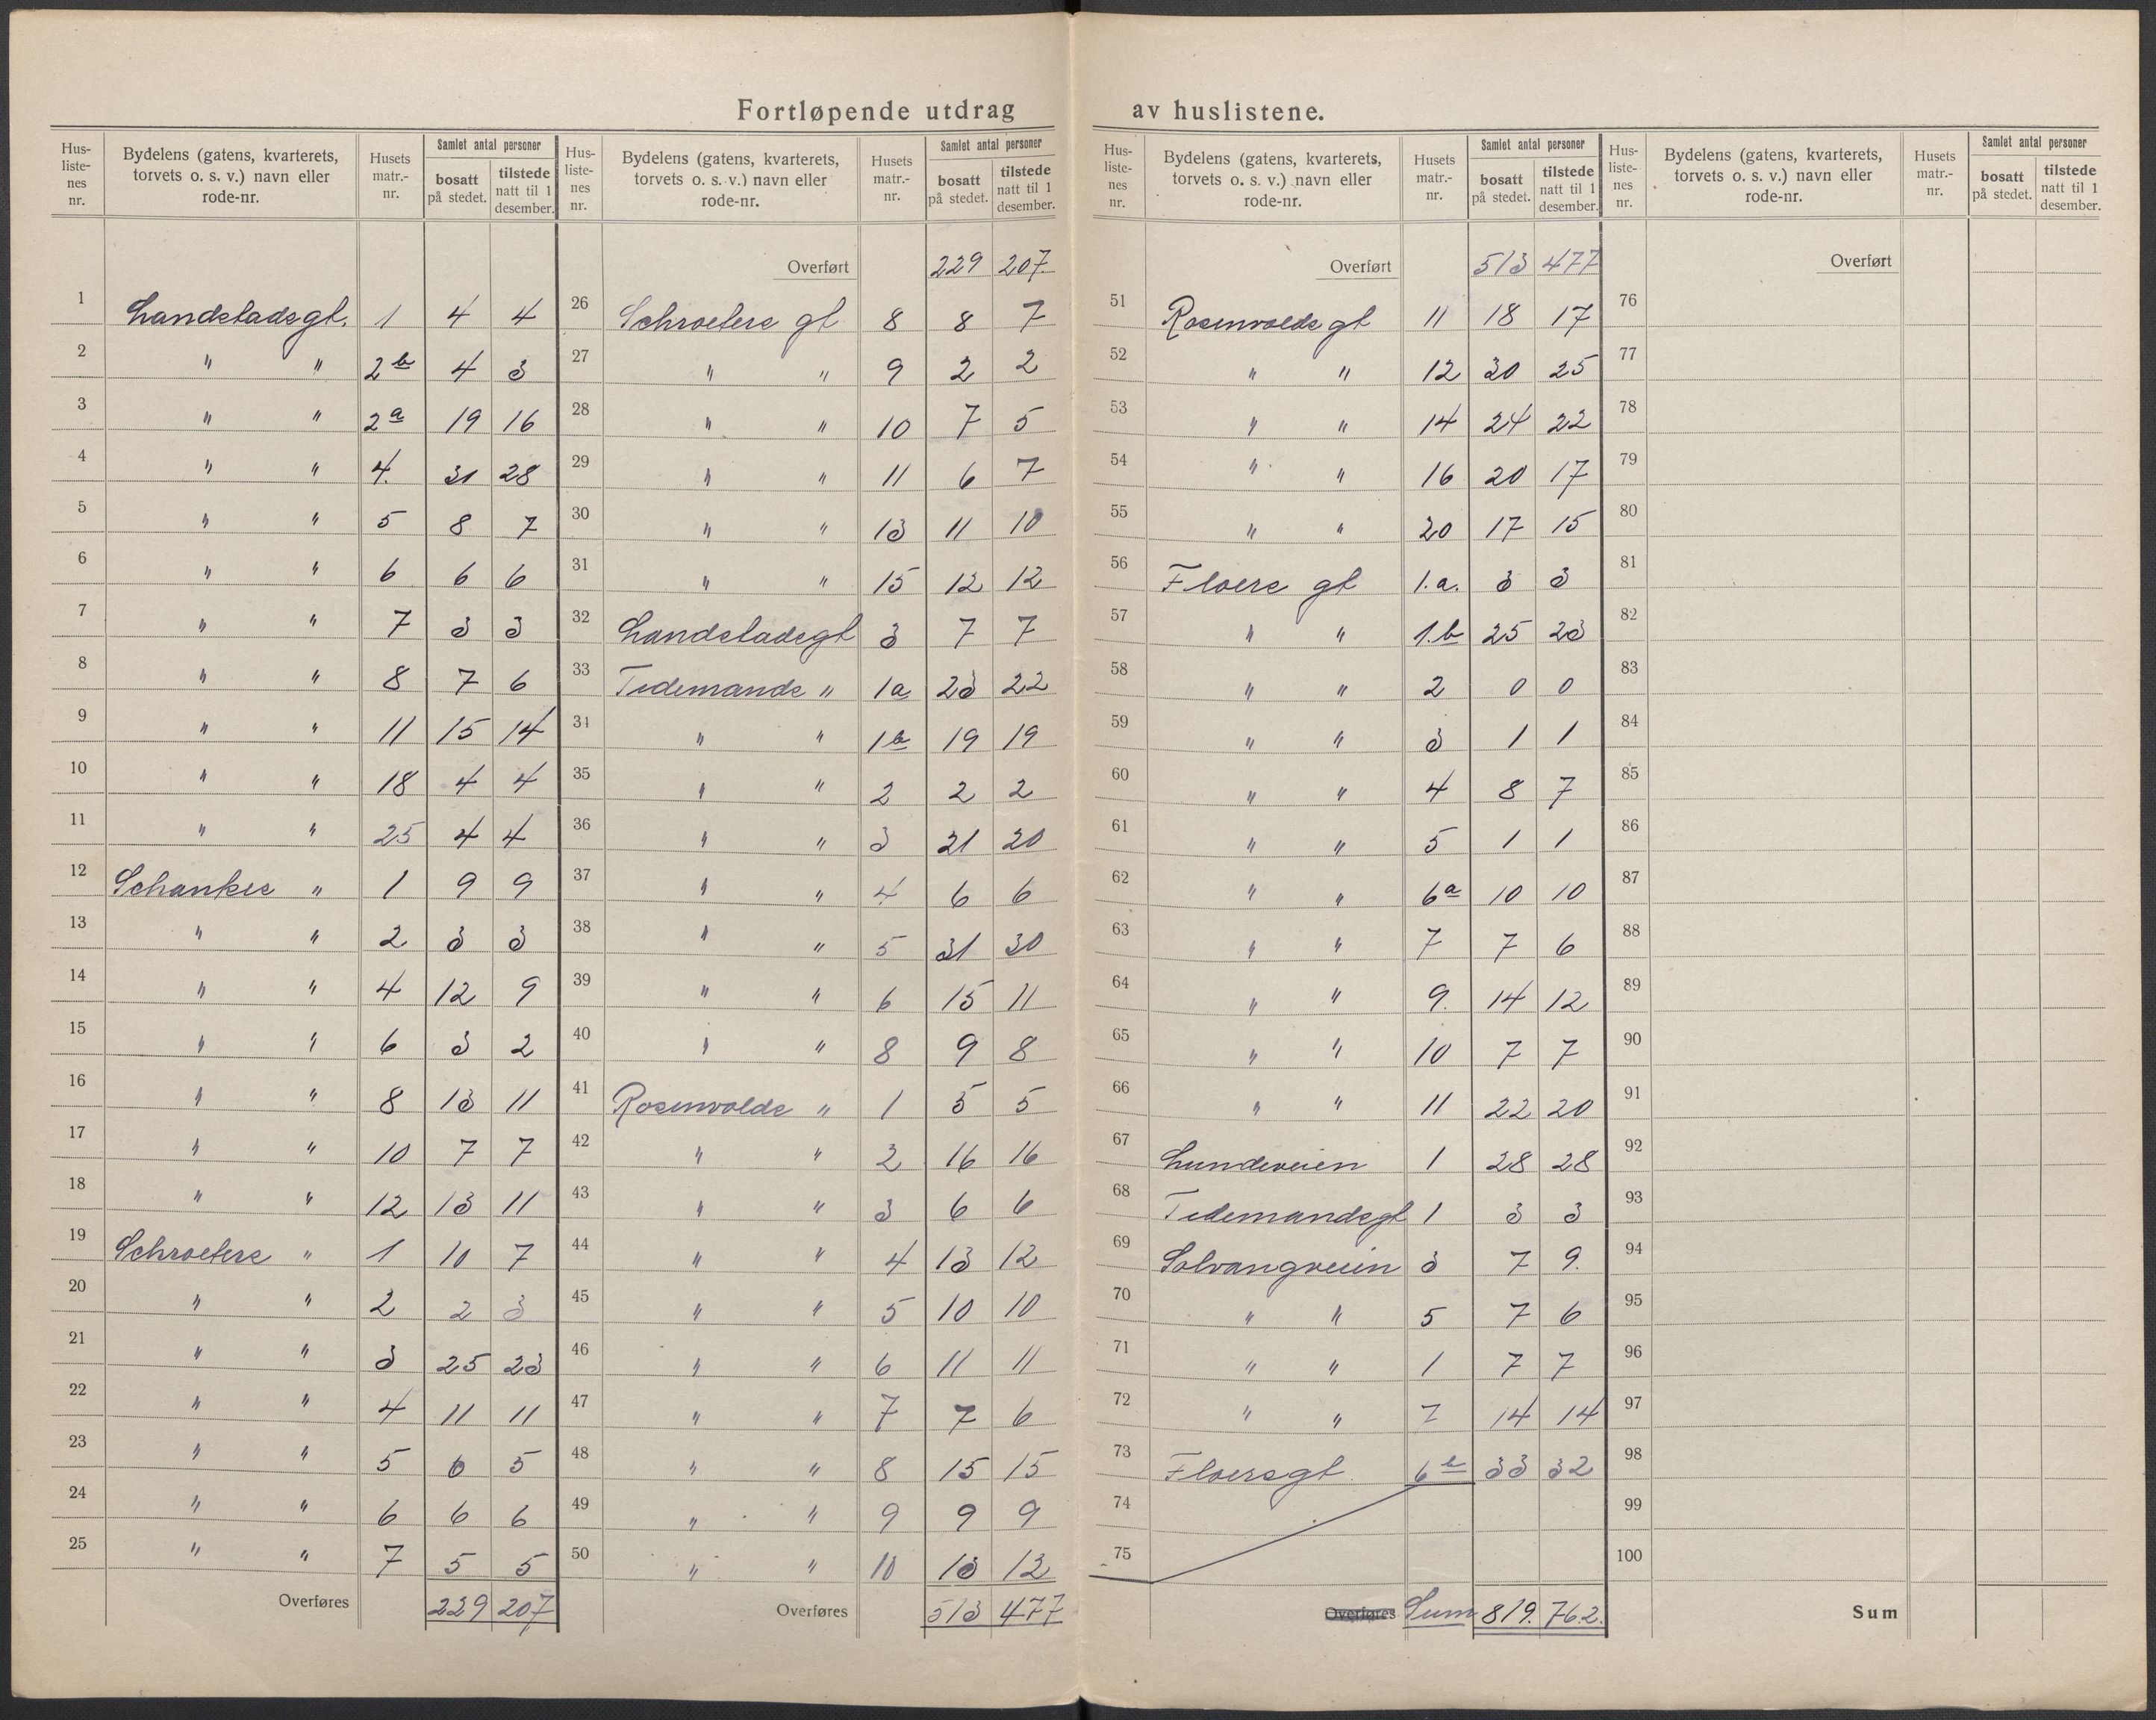 Fortløpende utdrag av huslistene.
Hus-listenes nr. | Bydelens (gatens, kvarterets, torvets o. s. v.) navn eller rode-nr. | Husets matr.-nr. | Samlet antal personer bosatt på stedet. | tilstede natt til 1 desember.
1 Landstadsgt. 1 4 4
2 " " 2b 4 3
3 " " 2a 19 16
4 " " 4. 31 28
5 " " 5 8 7
6 " " 6 6 6
7 " " 7 3 3
8 " " 8 7 6
9 " " 11 15 14
10 " " 18 4 4
11 " " 25 4 4
12 Schankes " 1 9 9
13 " " 2 3 3
14 " " 4 12 9
15 " " 6 3 2
16 " " 8 13 11
17 " " 10 7 7
18 " " 12 13 11
19 Schroeters " 1 10 7
20 " " 2 2 3
21 " " 3 25 23
22 " " 4 11 11
23 " " 5 6 5
24 " " 6 6 6
25 " " 7 5 5
Overføres 229 207
Hus-listenes nr. | Bydelens (gatens, kvarterets, torvets o. s. v.) navn eller rode-nr. | Husets matr.-nr. | Samlet antal personer bosatt på stedet. | tilstede natt til 1 desember.
Overført 229 207.
26 Schroeters gt 8 8 7
27 " " 9 2 2
28 " " 10 7 5
29 " " 11 6 7
30 " " 13 11 10
31 " " 15 12 12
32 Landstadsgt 3 7 7
33 Tidemands " 1a 23 22
34 " " 1b 19 19
35 " " 2 2 2
36 " " 3 21 20
37 " " 4 6 6
38 " " 5 31 30
39 " " 6 15 11
40 " " 8 9 8
41 Rosenvolds " 1 5 5
42 " " 2 16 16
43 " " 3 6 6
44 " " 4 13 12
45 " " 5 10 10
46 " " 6 11 11
47 " " 7 7 6
48 " " 8 15 15
49 " " 9 9 9
50 " " 10 13 12
Overføres 513 477
Hus-listenes nr. | Bydelens (gatens, kvarterets, torvets o. s. v.) navn eller rode-nr. | Husets matr.-nr. | Samlet antal personer bosatt på stedet. | tilstede natt til 1 desember.
Overført 513 477
51 Rosenvolds gt 11 18 17
52 " " 12 30 25
53 " " 14 24 22
54 " " 16 20 17
55 " " 20 17 15
56 Floers gt 1.a. 3 3
57 " " 1.b 25 23
58 " " 2 0 0
59 " " 3 1 1
60 " " 4 8 7
61 " " 5 1 1
62 " " 6a 10 10
63 " " 7 7 6
64 " " 9. 14 12
65 " " 10 7 7
66 " " 11 22 20
67 Lundeveien 1 28 28
68 Tidemandsgt 1 3 3
69 Solvangveien 3 7 9.
70 " " 5 7 6
71 " " 1 7 7
72 " " 7 14 14
73 Floersgt. 6b 33 32
74
75
Overføres Sum 819. 762.
Hus-listenes nr. | Bydelens (gatens, kvarterets, torvets o. s. v.) navn eller rode-nr. | Husets matr.-nr. | Samlet antal personer bosatt på stedet. | tilstede natt til 1 desember.
Overført
76
77
78
79
80
81
82
83
84
85
86
87
88
89
90
91
92
93
94
95
96
97
98
99
100
Sum